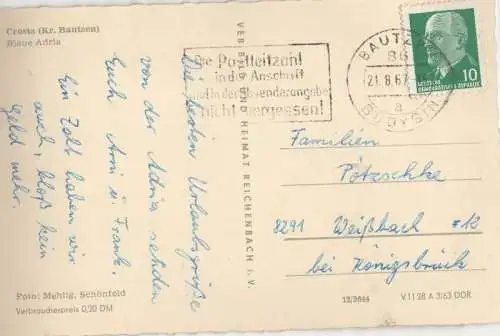 Crosta (Kr. Bautzen)
Blaue Adria
Die besten Urlaubsgrüße
von der Adria senden
Euch Arni u. Frank.
Ein Zelt haben wir
auch, bloß kein
Geld mehr.
Foto: Mehlig, Schönfeld
Verbraucherpreis 0,20 DM
VERLAG BILD UND HEIMAT REICHENBACH i. V.
Die Postleitzahl
in der Anschrift
und in der Absenderangabe
nicht vergessen!
BAUTZEN
86
21.8.67
a
BUDYŠIN
10
DEUTSCHE
DEMOKRATISCHE REPUBLIK
Familien
Pötzschke
8291 Weißbach
bei Königsbrück
12/3646
V 11 28 A 3/63 DDR